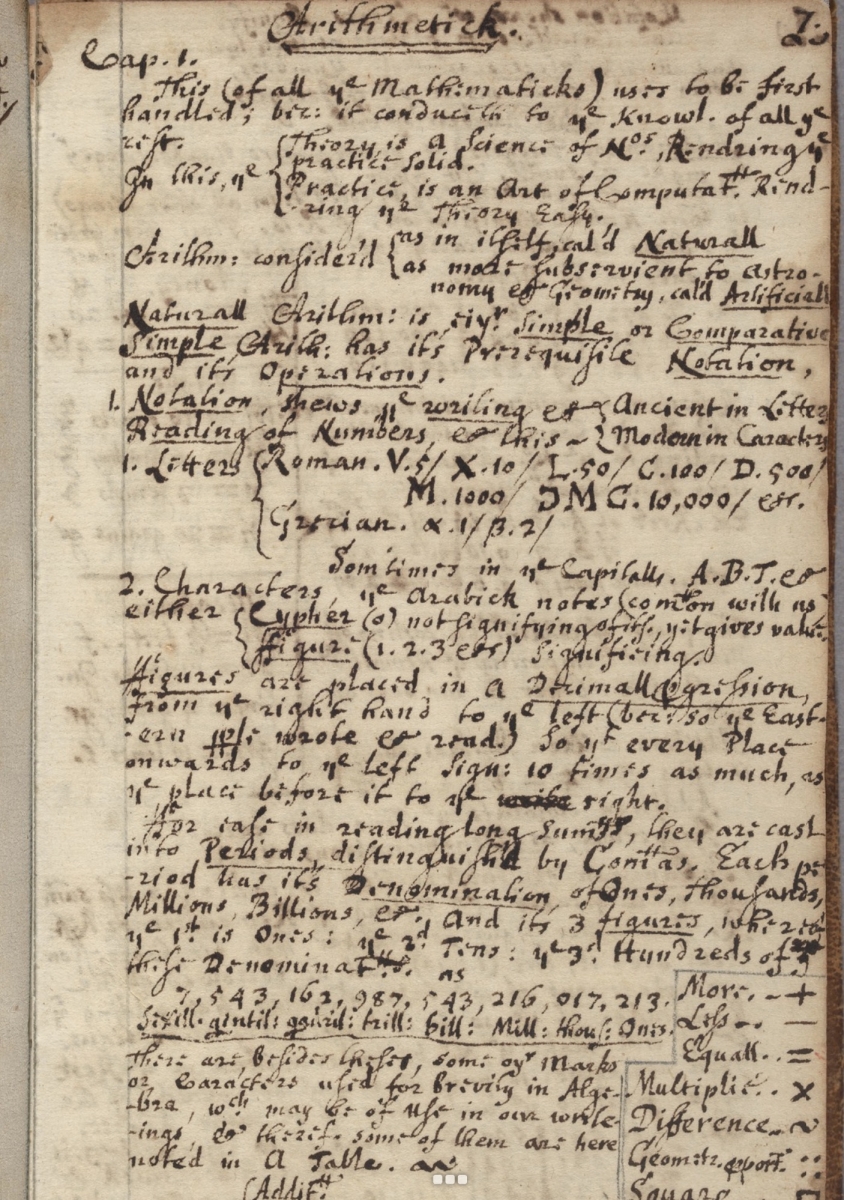 Arithmetick.
7.
Cap. 1.
This (of all yᵉ Mathematicks) uses to be first
handled; bec: it conduceth to yᵉ Knowl. of all yᵉ
rest.
In this, yᵉ { Theory, is A Science of Nᵒˢ, Rendring yᵉ
practice Solid.
Practice, is an Art of Computat. Rend-
-ring yᵉ Theory Easy.
Arithm: consider'd { as in itself, cal'd Naturall
as more subservient to Astro-
nomy & Geometry, cal'd Artificiall
Naturall Arithm: is eiyʳ Simple or Comparative
Simple Arith: has it's Prerequisite Notation,
and it's Operations.
1. Notation, shews yᵉ writing & { Ancient in Letters
Reading of Numbers, & this - { Modern in Caracters
1. Letters { Roman. V.5/ X.10/ L.50/ C.100/ D.500/
M.1000/ IMC.10,000/ &c.
Grecian. α.1/ β.2/
Somtimes in yᵉ Capitalls. A.B.T. &
2. Characters, yᵉ Arabick notes (comon with us
either { Cypher (0) not signifying of its, yet gives value.
Figure (1. 2. 3 &c) Significing.
Figures are placed in A Decimall Pgression,
from yᵉ right hand to yᵉ left (bec: so yᵉ East-
-ern pple wrote & read.) So yᵗ every Place
onwards to yᵉ left Sign: 10 times as much, as
yᵉ place before it to yᵉ right.
For ease in reading long Sums, they are cast
into Periods, distinguish'd by Comas. Each pe-
-riod has it's Denomination, of Ones, Thousands,
Millions, Billions, &c, And its 3 figures, whereof
yᵉ 1ˢᵗ is Ones: yᵉ 2ᵈ Tens: yᵉ 3ᵈ Hundreds of
these Denominat. as
7, 543, 162, 987, 543, 216, 017, 213.
Sexill: quintil: quadril: trill: bill: Mill: thous: Ones.
There are, besides these, some oyʳ Marks
or Caracters used for brevity in Alge-
-bra, wᶜʰ may be of Use in our write-
-ings, & theref. some of them are here
noted in A Table.
(Addit.
More. - +
Less - . —
Equall. . =
Multiplic. . ×
Difference. ~
Geometr. pport. ::
Square □